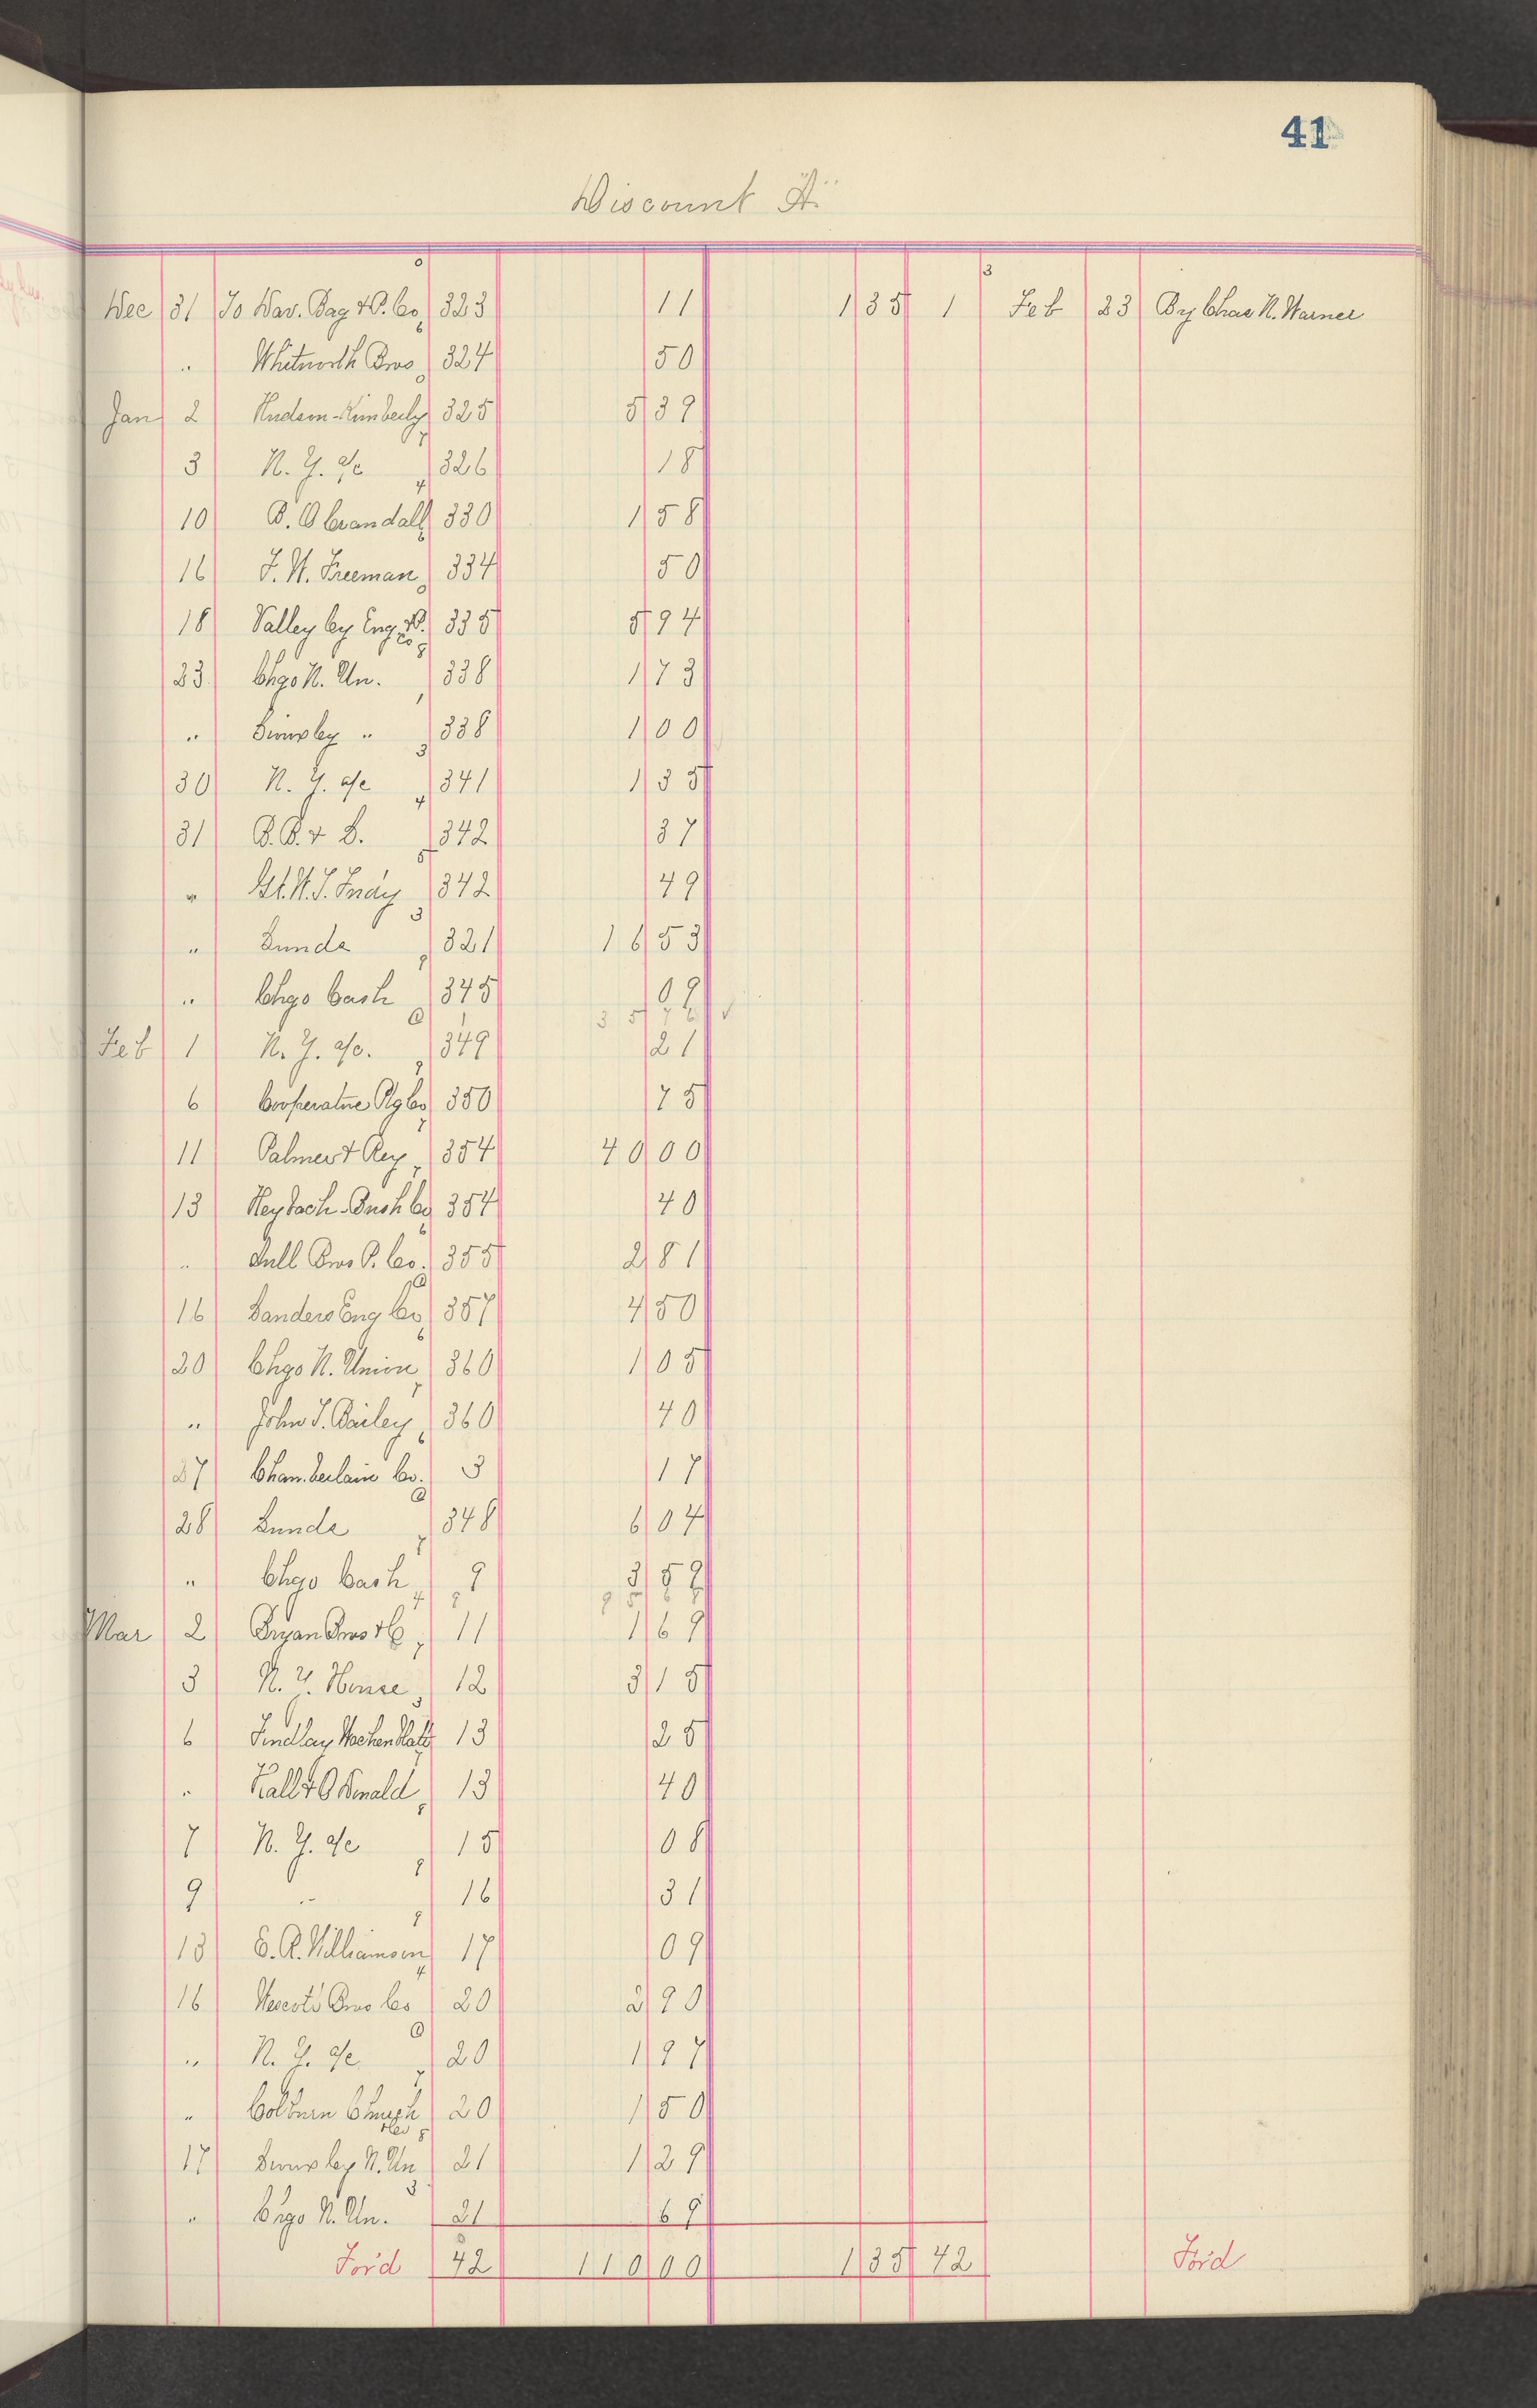 41
Discount A/c
Dec 31 To Nav. Bag & P. Co, 323 11 1 35 1 Feb 23 By Chas H. Warner
" Whitworth Bros 324 50
Jan 2 Hudson-Kimberly 325 5 39
3 N. Y. a/c 326 18
10 B. O Crandall 330 1 58
16 F. W. Freeman 334 50
18 Valley Cy Eng & P. Co 335 5 94
23 Chgo N. Un. 338 1 73
" Simpley " 338 1 00
30 N. Y. a/c 341 1 35
31 B. B. & S. 342 37
" 342 49
" Sunds 321 16 53
" Chgo Cash 345 09
Feb 1 N. Y. a/c. 349 21
6 Cooperative Co 350 75
11 Palmer & Rey 354 40 00
13 Heybach-Bush Co 354 40
" Dull Bros P. Co. 355 2 81
16 Sanders Eng Co 357 4 50
20 Chgo N. Union 360 1 05
" John T. Bailey 360 40
27 Chamberlain Co. 3 17
28 Sunds 348 6 04
" Chgo Cash 9 3 59
Mar 2 Bryan Bros & Co 11 1 69
3 N. Y. House 12 3 15
6 Findlay Wochenblatt 13 25
" Hall & O'Donald 13 40
7 N. Y. a/c 15 08
9 " 16 31
13 E. A. Williamson 17 09
16 Bros Co 20 2 90
" N. Y. a/c 20 1 97
" Colburn Church 20 1 50
17 N. Un 21 1 29
" Chgo N. Un. 21 69
For'd 42 110 00 1 35 42 For'd